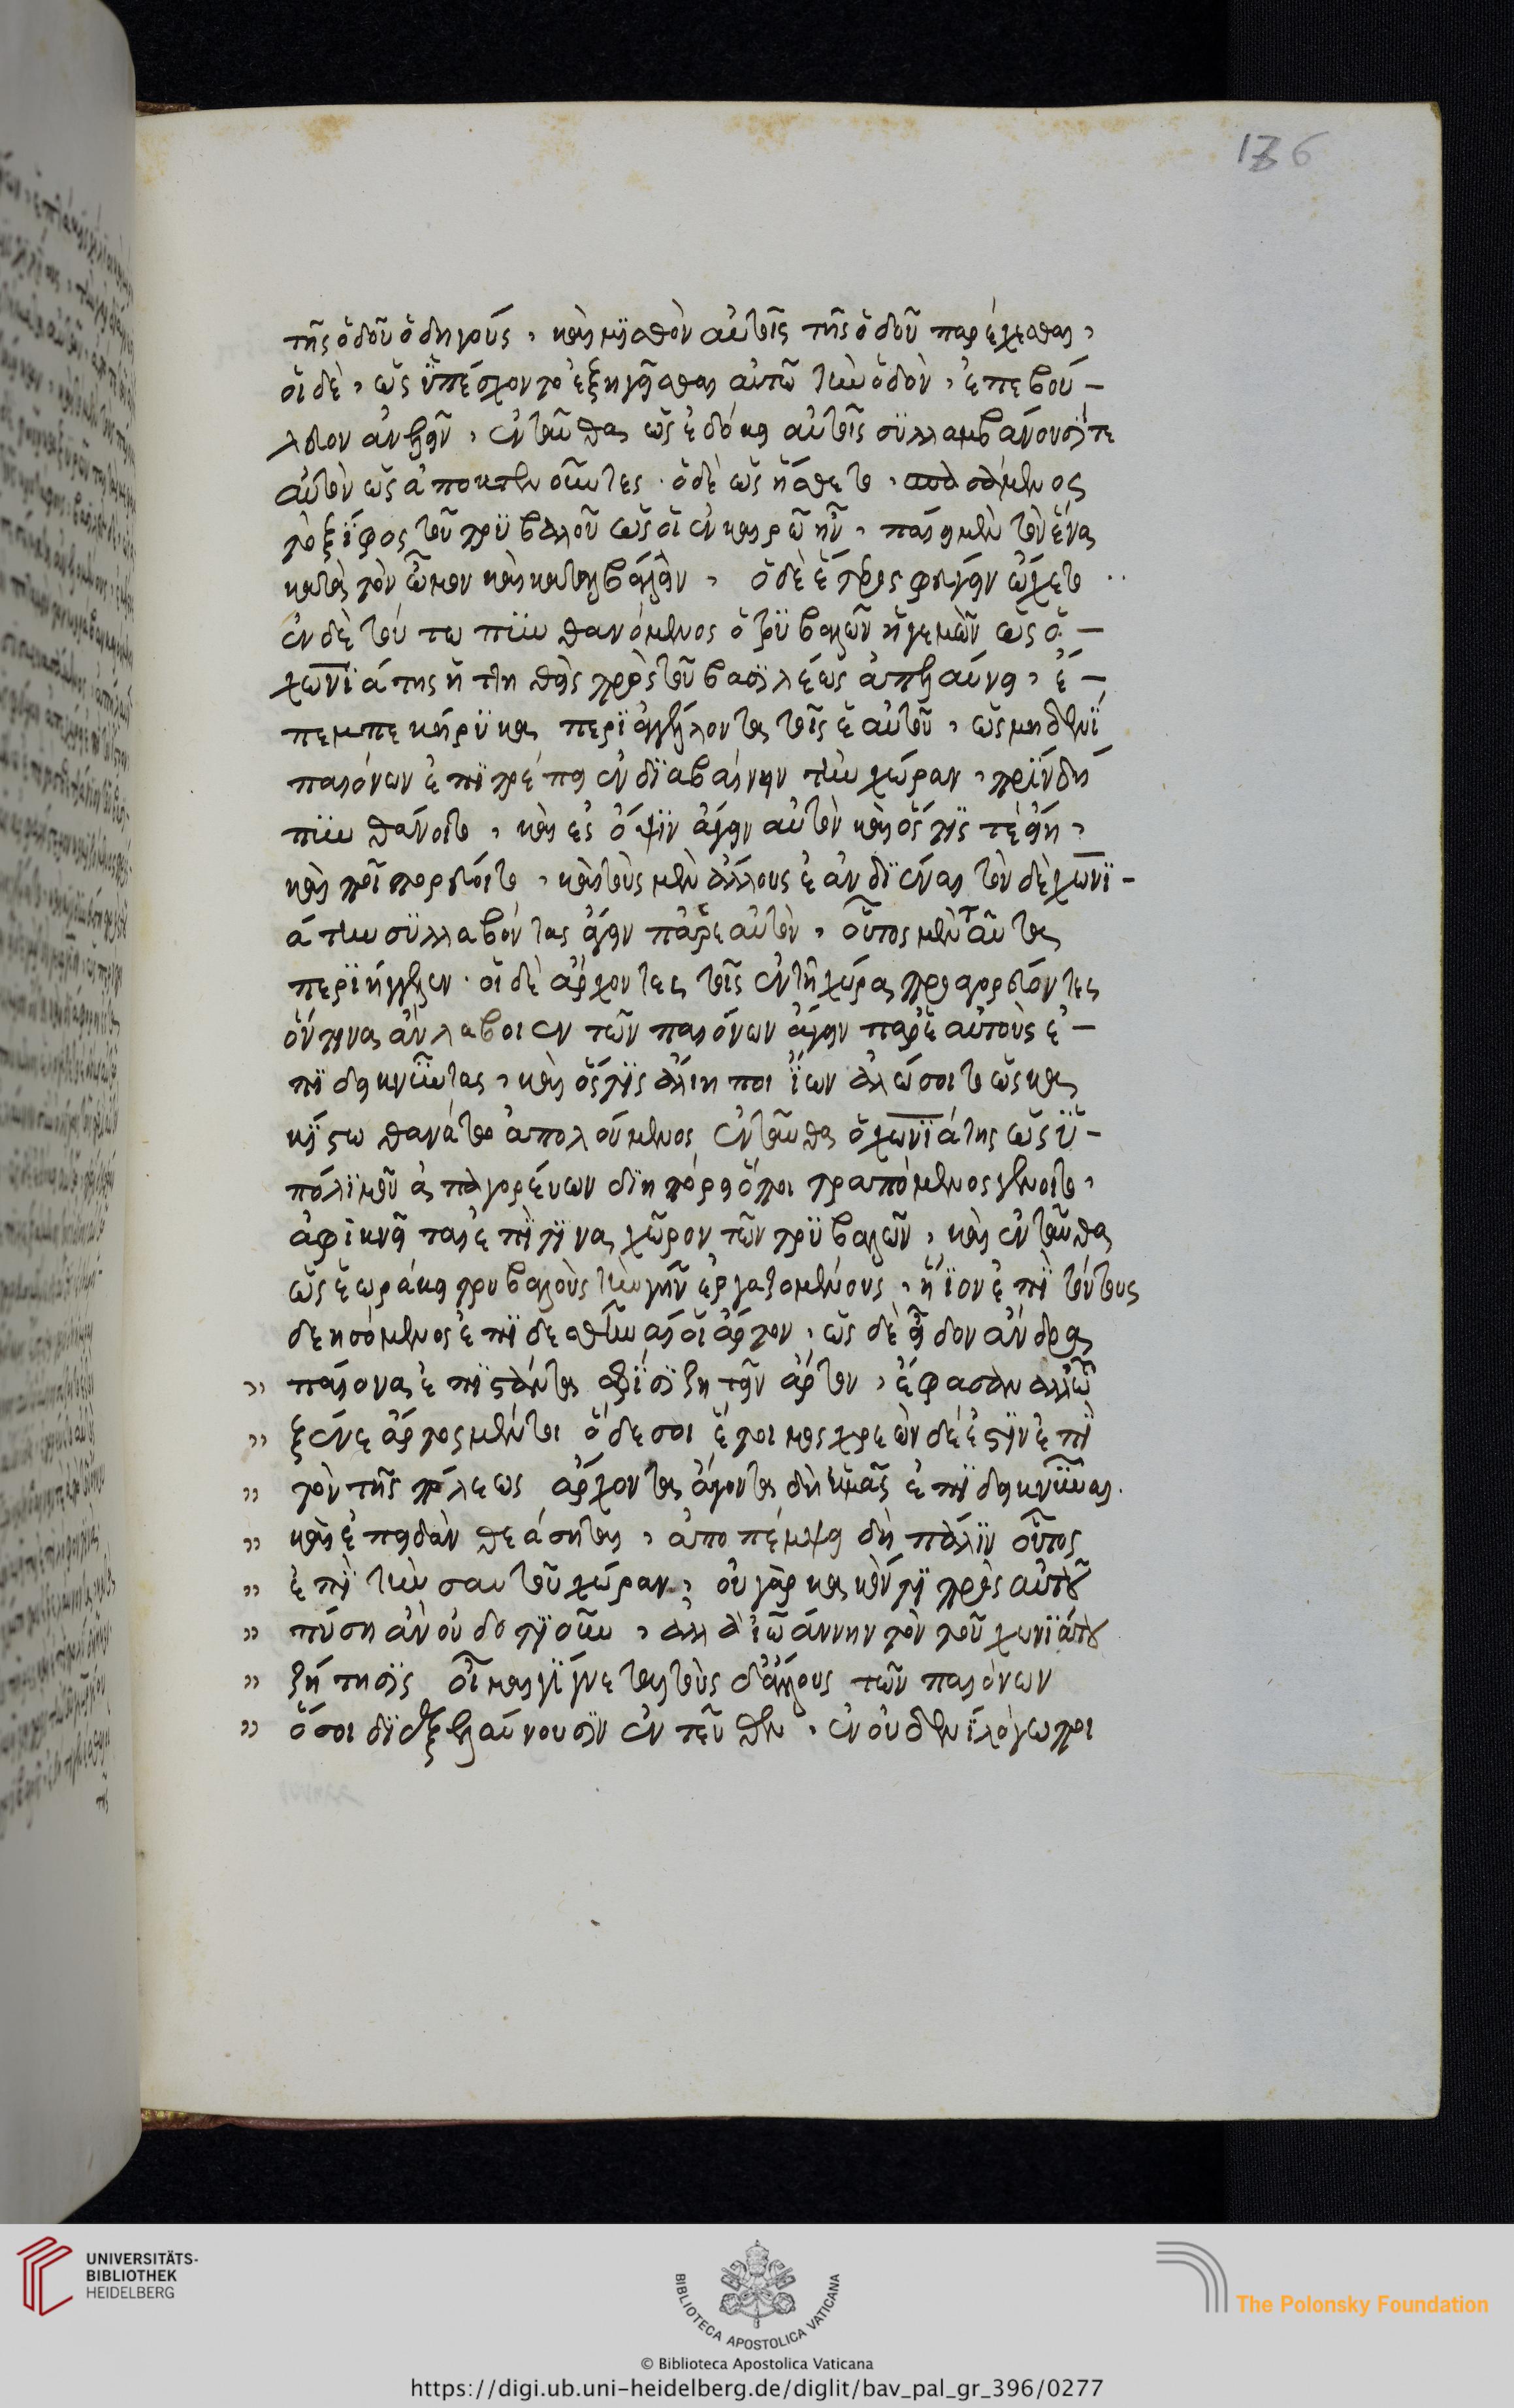 τῆς ὁδοῦ ὁδηγούς, καὶ μϊσθὸν αὐτοῖς τῆς ὁδοῦ παρέχεσθαι,
οἱ δὲ, ὡς ὑπέσχοντο ἐξηγεῖσθαι αὐτῶ τὴν ὁδὸν, ἐπεβού-
λευον ἀνελεῖν, ἐνταῦθα ὡς ἐδόκει αὐτοῖς συλλαμβάνουσί τε
αὐτὸν ὡς ἀποκτενοῦντες. ὁ δὲ ὡς ἤσθετο, σπασάμενος
τὸ ξίφος τοῦ τρϋβαλοῦ ὡς οἱ ἐν καιρῶ ἦν, παίει μὲν τὸν ἕνα
κατὰ τὸν ὦμον καὶ καταβάλλει, ὁ δὲ ἕτερος φυγὼν ὤχετο
ἐν δὲ τούτω πυνθανόμενος ὁ τρϋβαλῶν ἡγεμὼν ὡς ὁ-
χωνϊάτης ἡττηθεὶς πρὸς τοῦ βασϊλέως ἀπελαύνει, ἔ-
πεμπε κήρϋκα περϊαγγέλοντα τοῖς ἑαυτοῦ, ὡς μηδενὶ
παιόνων ἐπϊτρέπειν δϊαβαίνειν τὴν χώραν, πρὶν δὴ
πυνθάνοιτο, καὶ ἐς ὄψιν ἄγειν αὐτὸν καὶ ὅςτις τε εἴη,
καὶ ποῖ πορεύοιτο, καὶ τοὺς μὲν ἄλλους ἐᾶν δϊϊέναι τὸν δὲ χωνϊ-
άτην συλλαβόντας ἄγειν παρεαυτὸν, οὗτος μὲν ταῦτα
περϊήγγελεν. οἱ δὲ ἄρχοντες τοῖς ἐν τῆ χώρα προαγορεύοντες
ὅντινα ἂν λάβοιεν τῶν παιόνων ἄγειν παρεαυτοὺς ἐ-
πϊδεικνῦντας, καὶ ὅςτις ἄλλη ποι ἰων ἁλώσοιτο ὡς κα
κίστω θανάτω ἀπολούμενος ἐνταῦθα ὁ χωνϊάτης ὡς ὑ-
πὸ λϊμοῦ ἀπαγορεύων διηπόρει ὅποι τραπόμενος γένοιτο,
ἀφικνεῖται ἐπί τινα χῶρον τῶν τρϋβαλῶν, καὶ ἐνταῦθα
ὡς ἑωράκει τρυβαλοὺς τὴν γῆν ἐργαζομένους, ἤϊον ἐπὶ τούτους
δεησόμενος ἐπϊδεσθῆναί οἱ ἄρτον, ὡς δὲ εἶδον ἄνδρα
παίονα ἐπϊστάντα τὸν ἄρτον, ἔφασαν ἀλλὦ
ξένε ἄρτος μέντοι ὅδε σοι ἕτοιμος χρεὼν δέ ἐστιν ἐπὶ
τὸν τῆς πόλεως ἄρχοντα ἄγοντα δὴ ἡμᾶς ἐπϊδεικνῦναι.
καὶ ἐπειδὰν θεάσηται, ἀποπέμψει δὴ πάλιν οὗτος
ἐπὶ τὴν σαυτοῦ χώραν, οὐ γὰρ κακόν τϊ πρὸς αὐτοῦ
πείση ἂν οὐδοτιοῦν, ἀλλ ἰωάννην τὸν τοῦ χωνϊάτου
ζήτησϊς οἶμαι γίνεται τοὺς δἄλλους τῶν παιόνων
ὅσοι δϊεξελαύνουσϊν ἐντεῦθεν, ἐν οὐδενὶ λόγω ποι
176
UNIVERSITÄTS-
BIBLIOTHEK
HEIDELBERG
BIBLIOTECA APOSTOLICA VATICANA
The Polonsky Foundation
© Biblioteca Apostolica Vaticana
https://digi.ub.uni-heidelberg.de/diglit/bav_pal_gr_396/0277